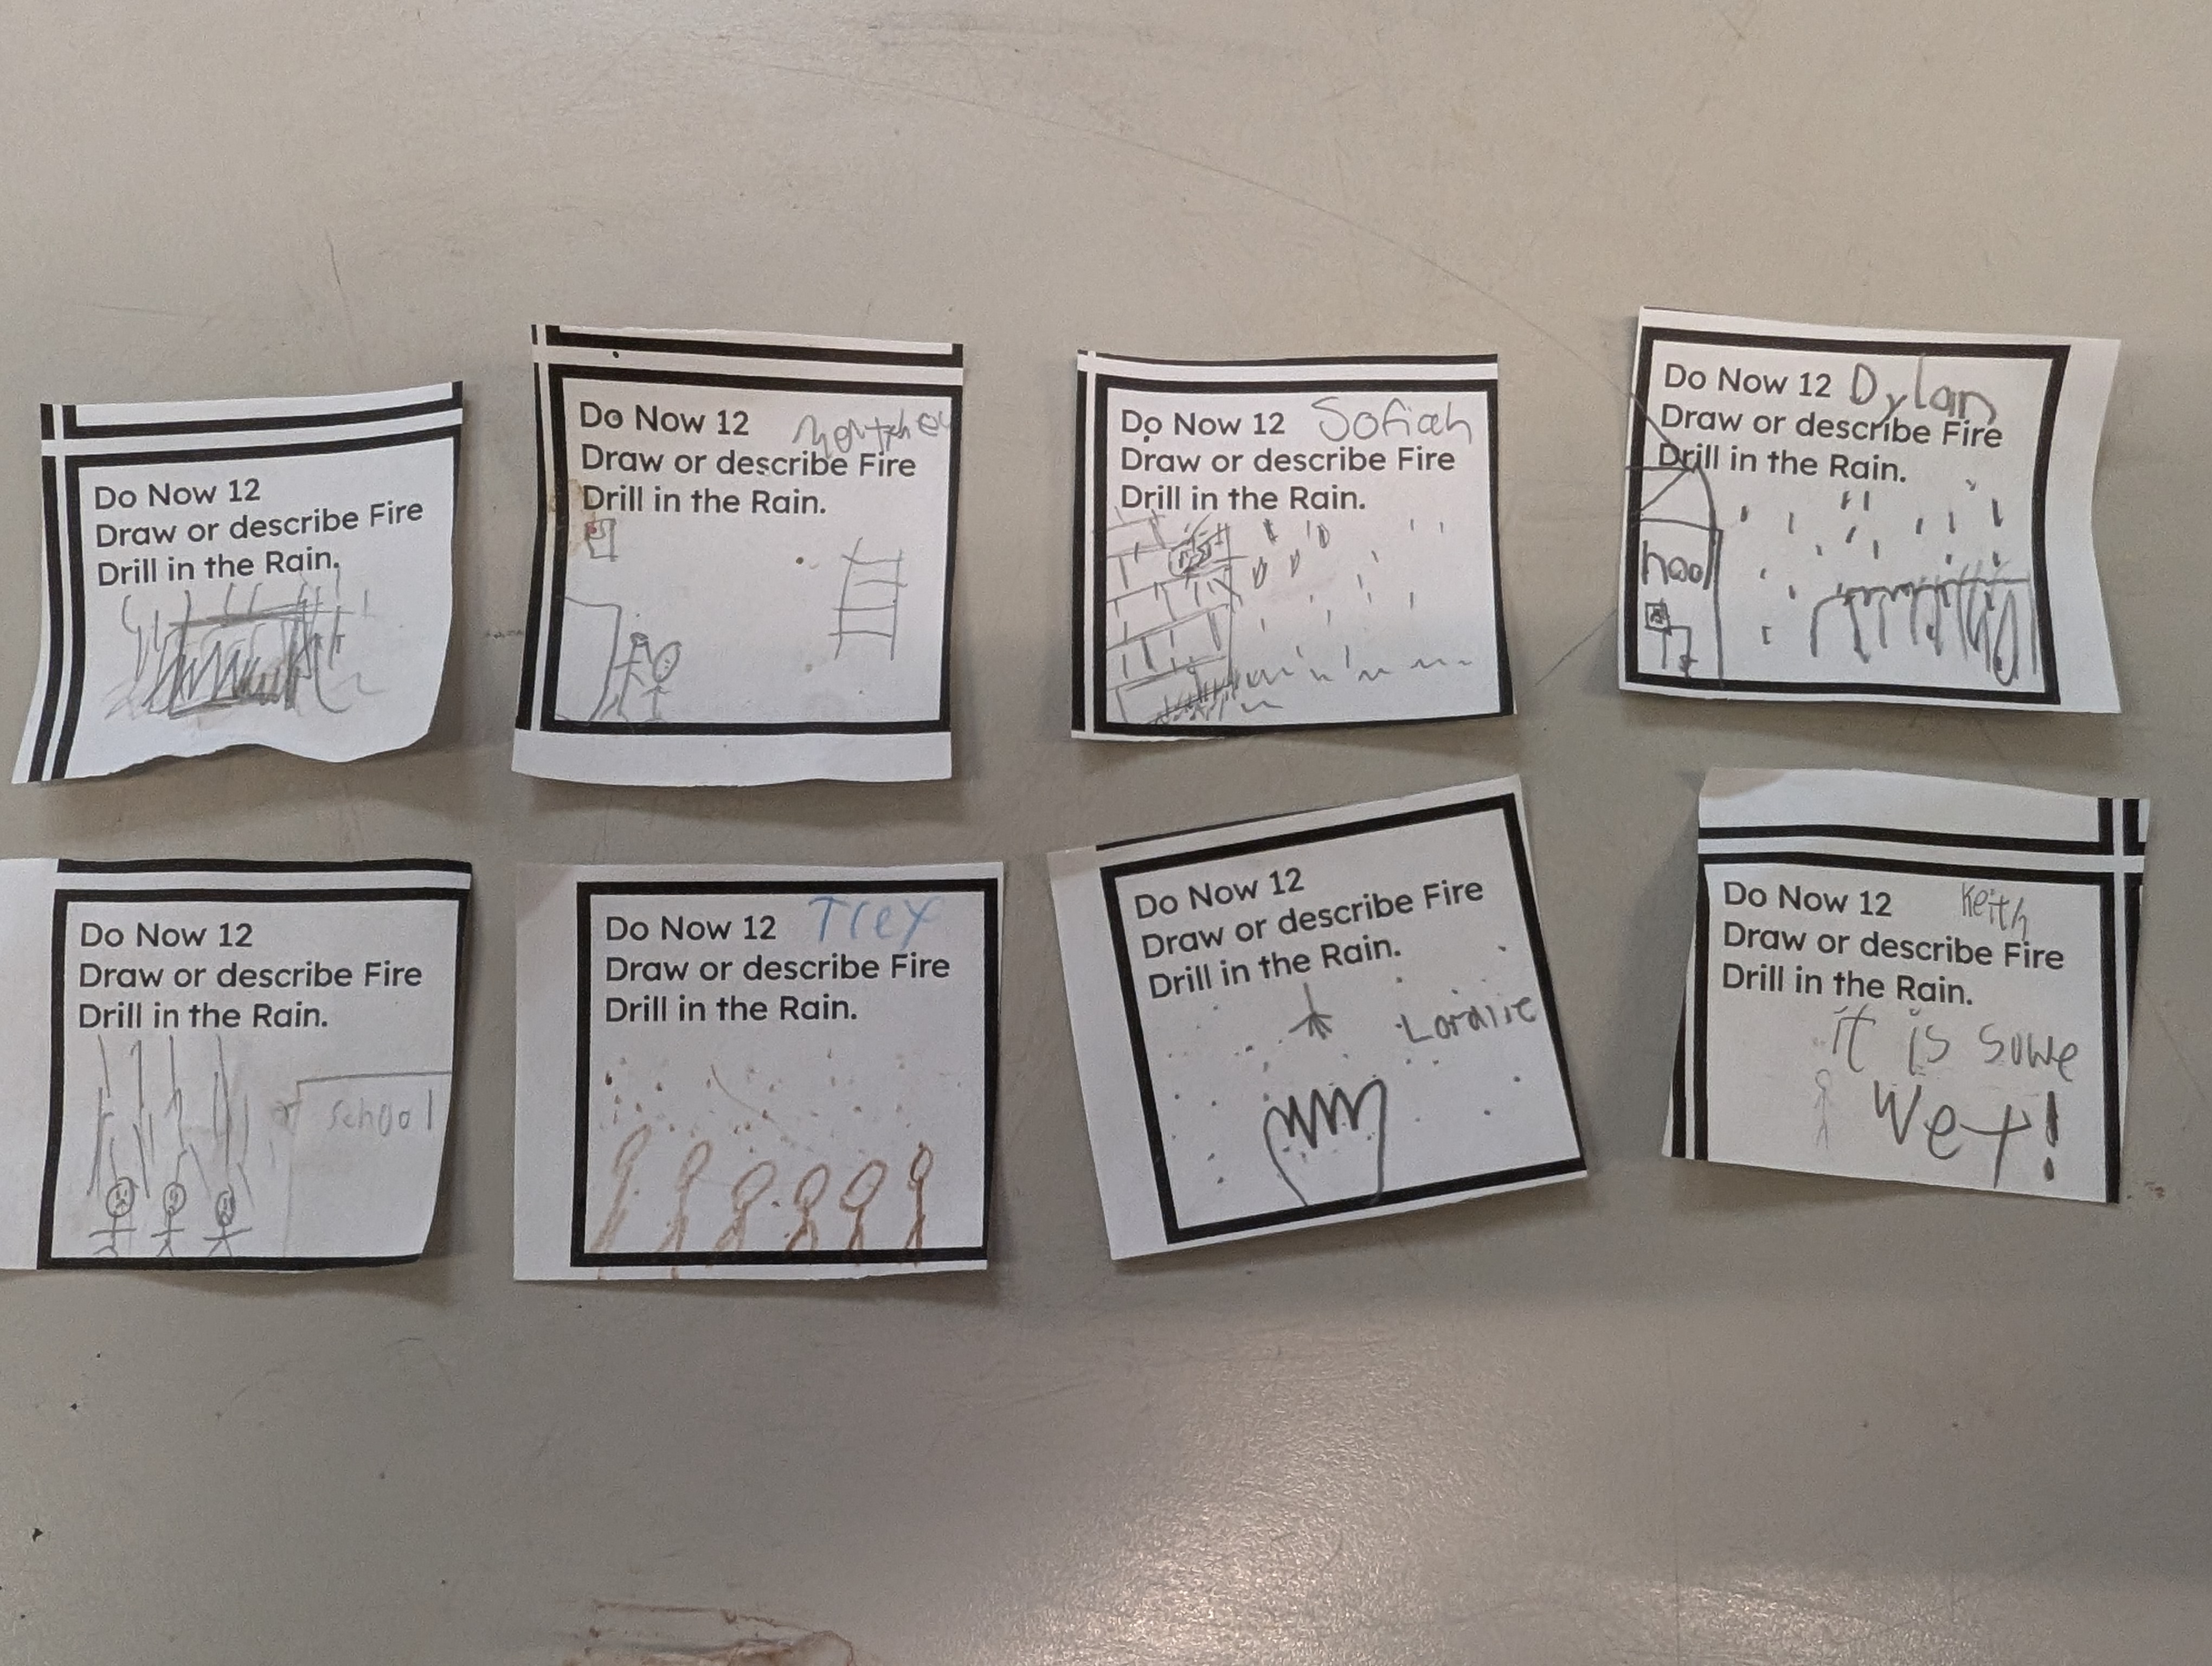 Do Now 12
Draw or describe Fire
Drill in the Rain.
Do Now 12
Draw or describe Fire
Drill in the Rain.
Do Now 12 Sofiah
Draw or describe Fire
Drill in the Rain.
Do Now 12 Dylan
Draw or describe Fire
Drill in the Rain.
hool
Do Now 12
Draw or describe Fire
Drill in the Rain.
School
Do Now 12 Trey
Draw or describe Fire
Drill in the Rain.
Do Now 12
Draw or describe Fire
Drill in the Rain.
Do Now 12 Keith
Draw or describe Fire
Drill in the Rain.
it is sowe
wet!